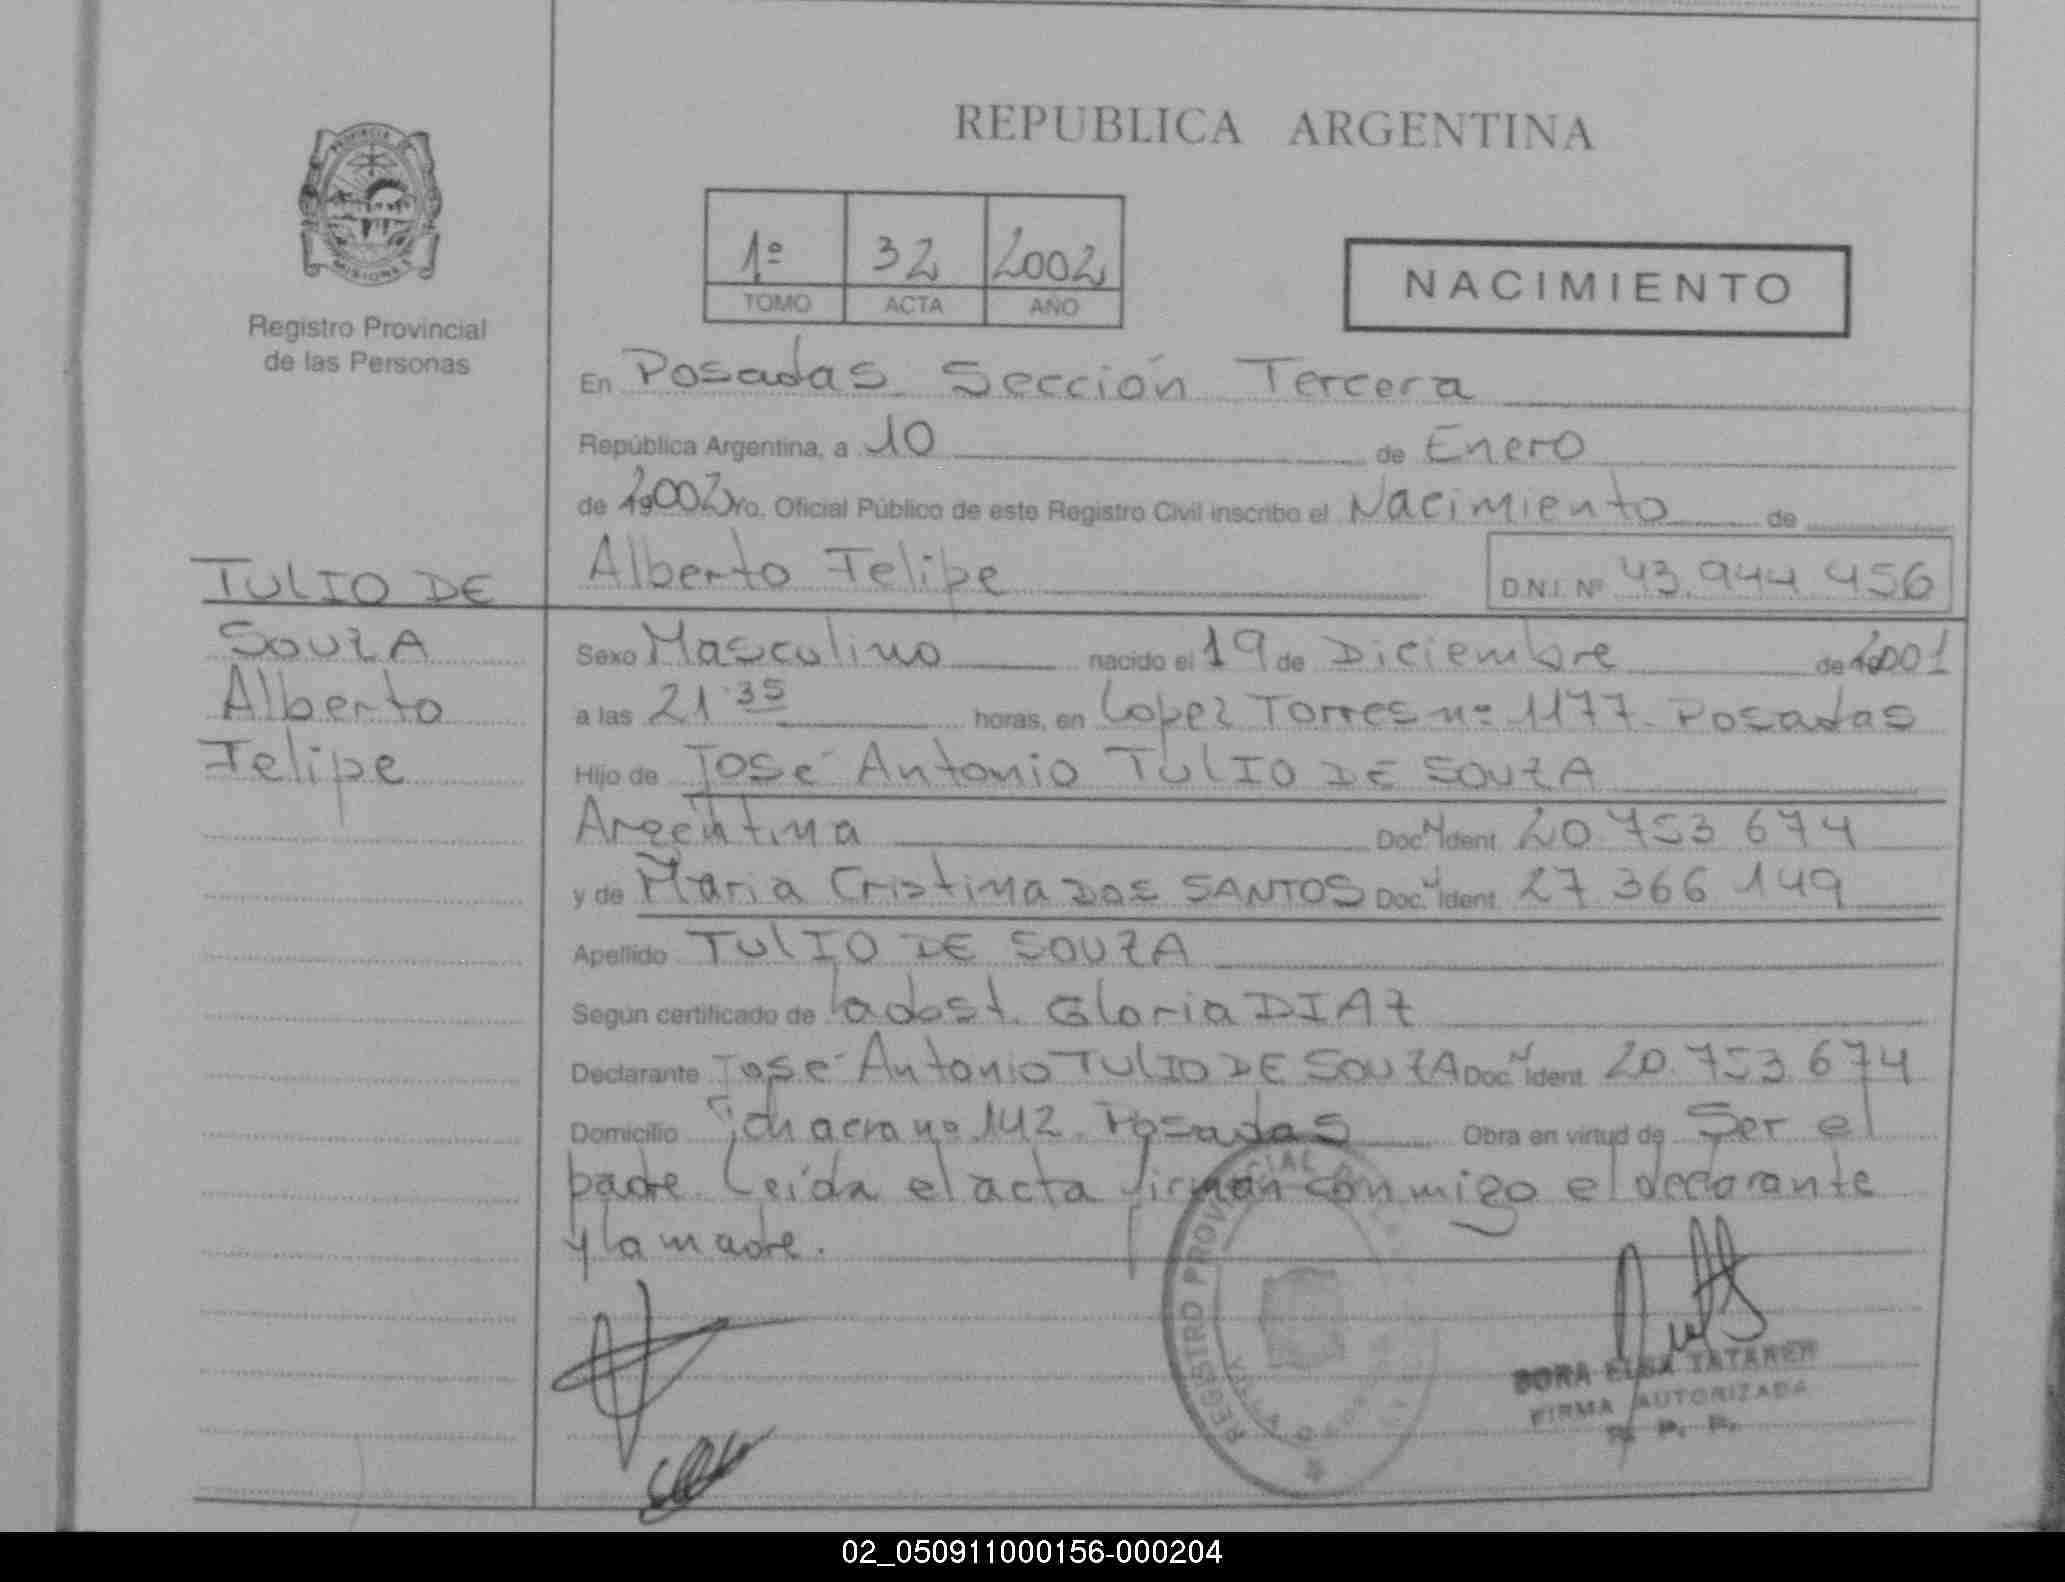 REPUBLICA ARGENTINA
PROVINCIA
MISIONES
Registro Provincial
de las Personas
1º 32 2002
TOMO ACTA AÑO
NACIMIENTO
En Posadas Sección Tercera
República Argentina, a 10 de Enero
de 2002 Yo, Oficial Público de este Registro Civil inscribo el Nacimiento de
Alberto Felipe D.N.I. Nº 43.944.456
TULIO DE
SOUZA
Alberto
Felipe
Sexo Masculino nacido el 19 de Diciembre de 2001
a las 21:35 horas, en Lopez Torres nº 1177. Posadas
Hijo de José Antonio TULIO DE SOUZA
Argentina Doc. Ident. 20.753.674
y de Maria Cristina DOS SANTOS Doc. Ident. 27.366.149
Apellido TULIO DE SOUZA
Según certificado de la obst. Gloria DIAZ
Declarante José Antonio TULIO DE SOUZA Doc. Ident. 20.753.674
Domicilio Chacra nº 142. Posadas Obra en virtud de Ser el
padre. Leída el acta firman conmigo el declarante
y la madre.
REGISTRO PROVINCIAL
ELSA TATAREN
FIRMA AUTORIZADA
R. P. P.
02_050911000156-000204